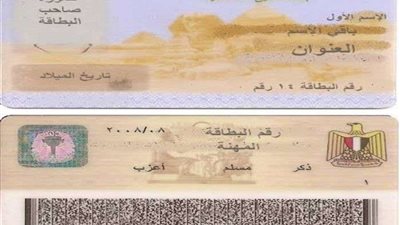 صاحب
البطاقة
الإسم الأول
باقي الأسم
العنوان
تاريخ الميلاد
رقم البطاقة ١٤ رقم
٢٠٠٨/٠٨
رقم البطاقة
المهنة
ذكر
مسلم
أعزب
١